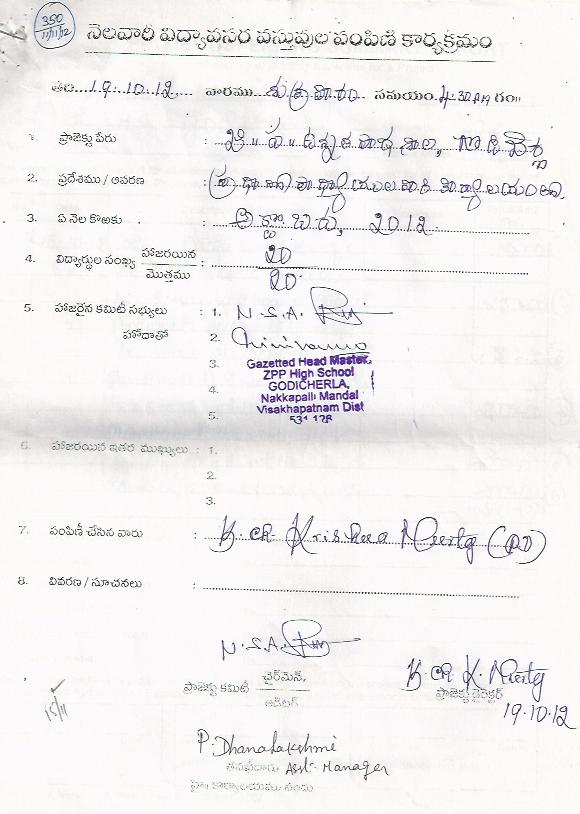 350
11/11/12
నెలవారీ విద్యావసర వస్తువుల పంపిణీ కార్యక్రమం
తేది...19.10.12.... వారము...శుక్రవారం సమయం.4.30PM గం॥
1. ప్రాజెక్టు పేరు : జి॥ప॥ఉన్నత పాఠశాల, గొడిచెర్ల
2. ప్రదేశము / ఆవరణ : ప్రధానోపాధ్యాయుల వారి కార్యాలయంలో.
3. ఏ నెల కొఱకు : అక్టోబరు, 2012.
4. విద్యార్థుల సంఖ్య హాజరయిన / మొత్తము : 20 / 20
5. హాజరైన కమిటీ సభ్యులు : 1. N.S.A.
హోదాతో 2.
3. Gazetted Head Master,
ZPP High School
4. GODICHERLA,
Nakkapalli Mandal
5. Visakhapatnam Dist
531 126
6. హాజరయిన ఇతర ముఖ్యులు : 1.
2.
3.
7. పంపిణీ చేసిన వారు : K.Ch. Krishna Murty (PD)
8. వివరణ / సూచనలు :
N.S.A.
ప్రాజెక్టు కమిటీ ఛైర్‌మెన్, / ఆడిటర్
K.Ch.K. Murty
ప్రాజెక్టు డైరెక్టర్
19.10.12
15/11
P. Dhanalakshmi
తనిఖీదారు Asst. Manager
హె॥ కార్యాలయము నందు